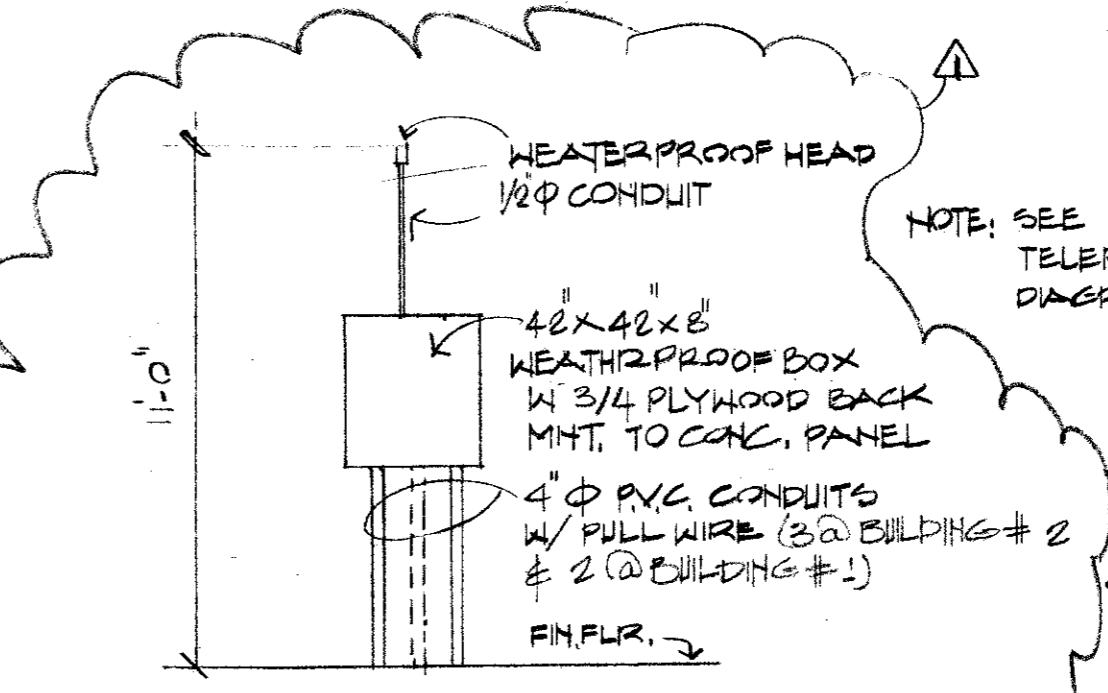 1
WEATERPROOF HEAD
1/2"Φ CONDUIT
NOTE: SEE
42"X42"X8"
WEATHRPROOF BOX
W 3/4 PLYWOOD BACK
MNT. TO CONC. PANEL
4"Φ P.V.C. CONDUITS
W/ PULL WIRE (3@BUILDING # 2
& 2 @ BUILDING #1)
FIN.FLR.
11'-0"